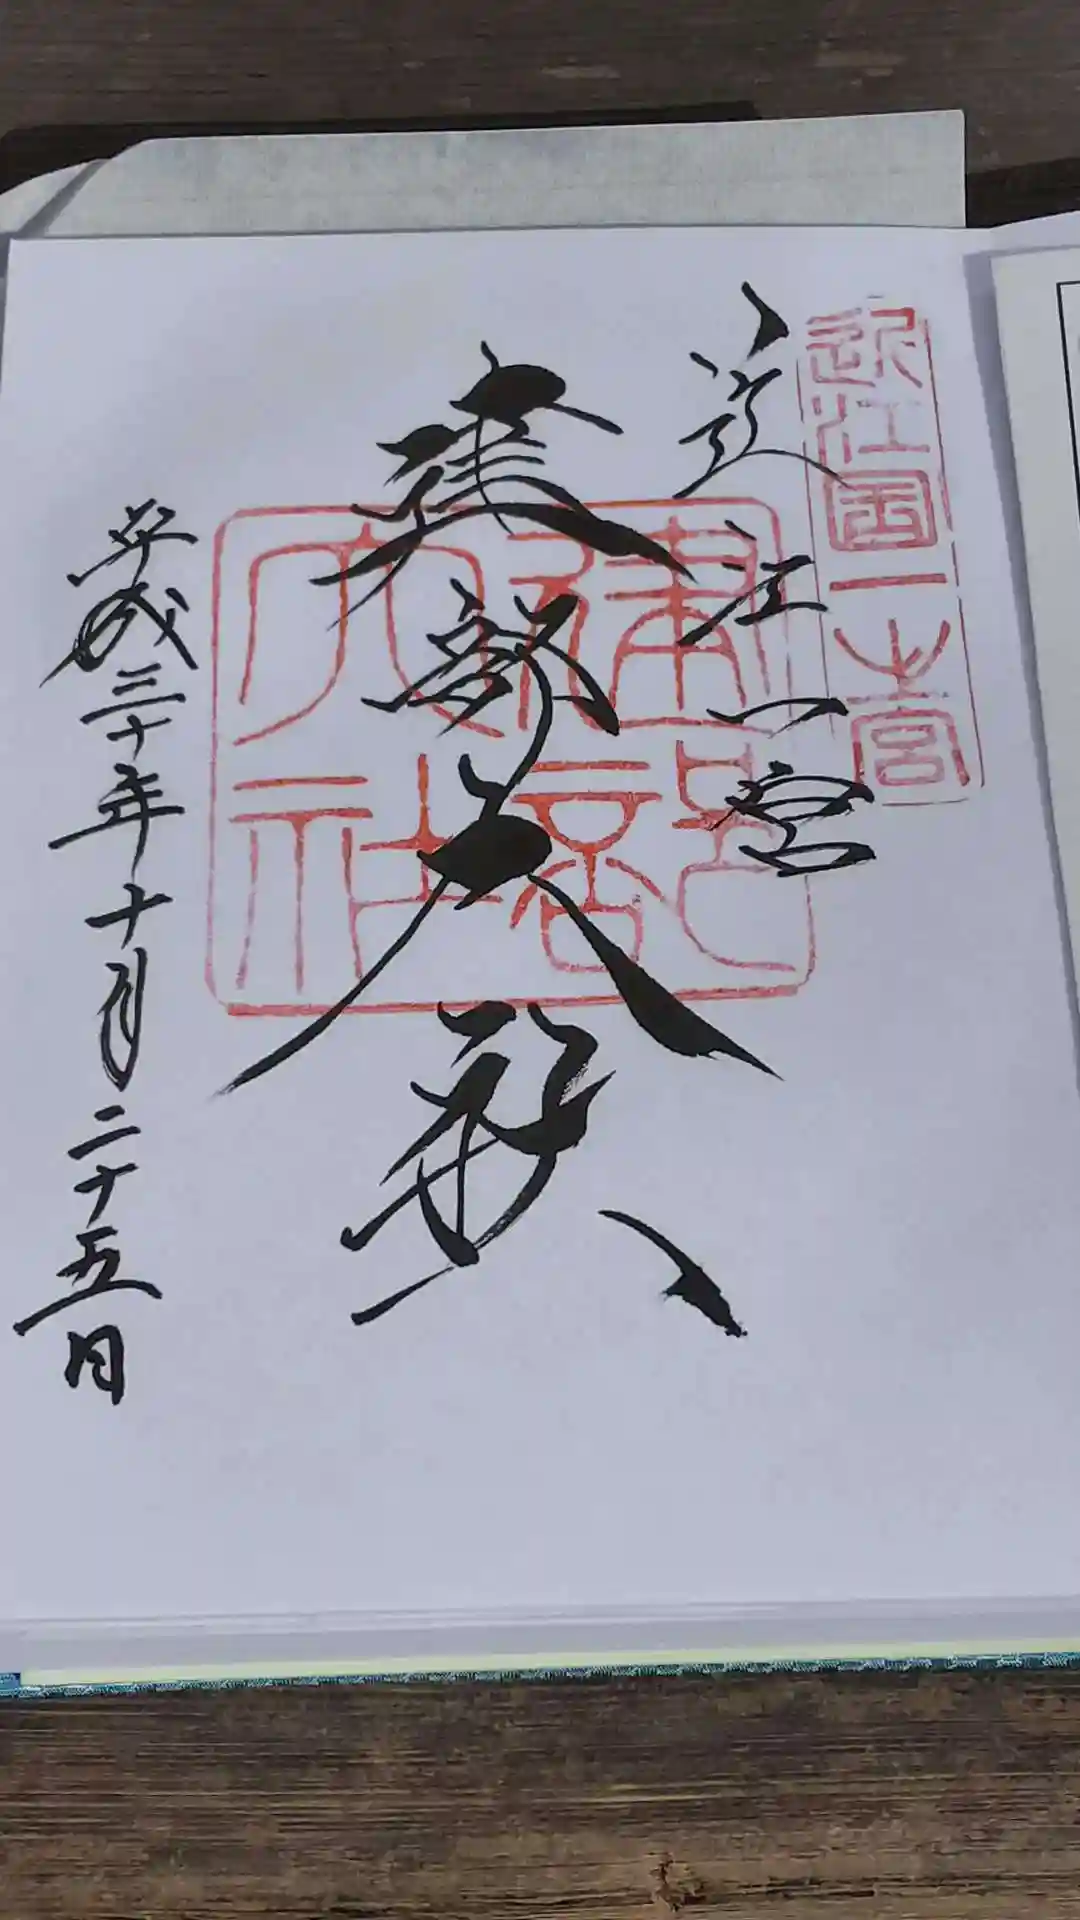 近江国一之宮
近江一宮
建部大
建部大社
平成三十年十月二十五日